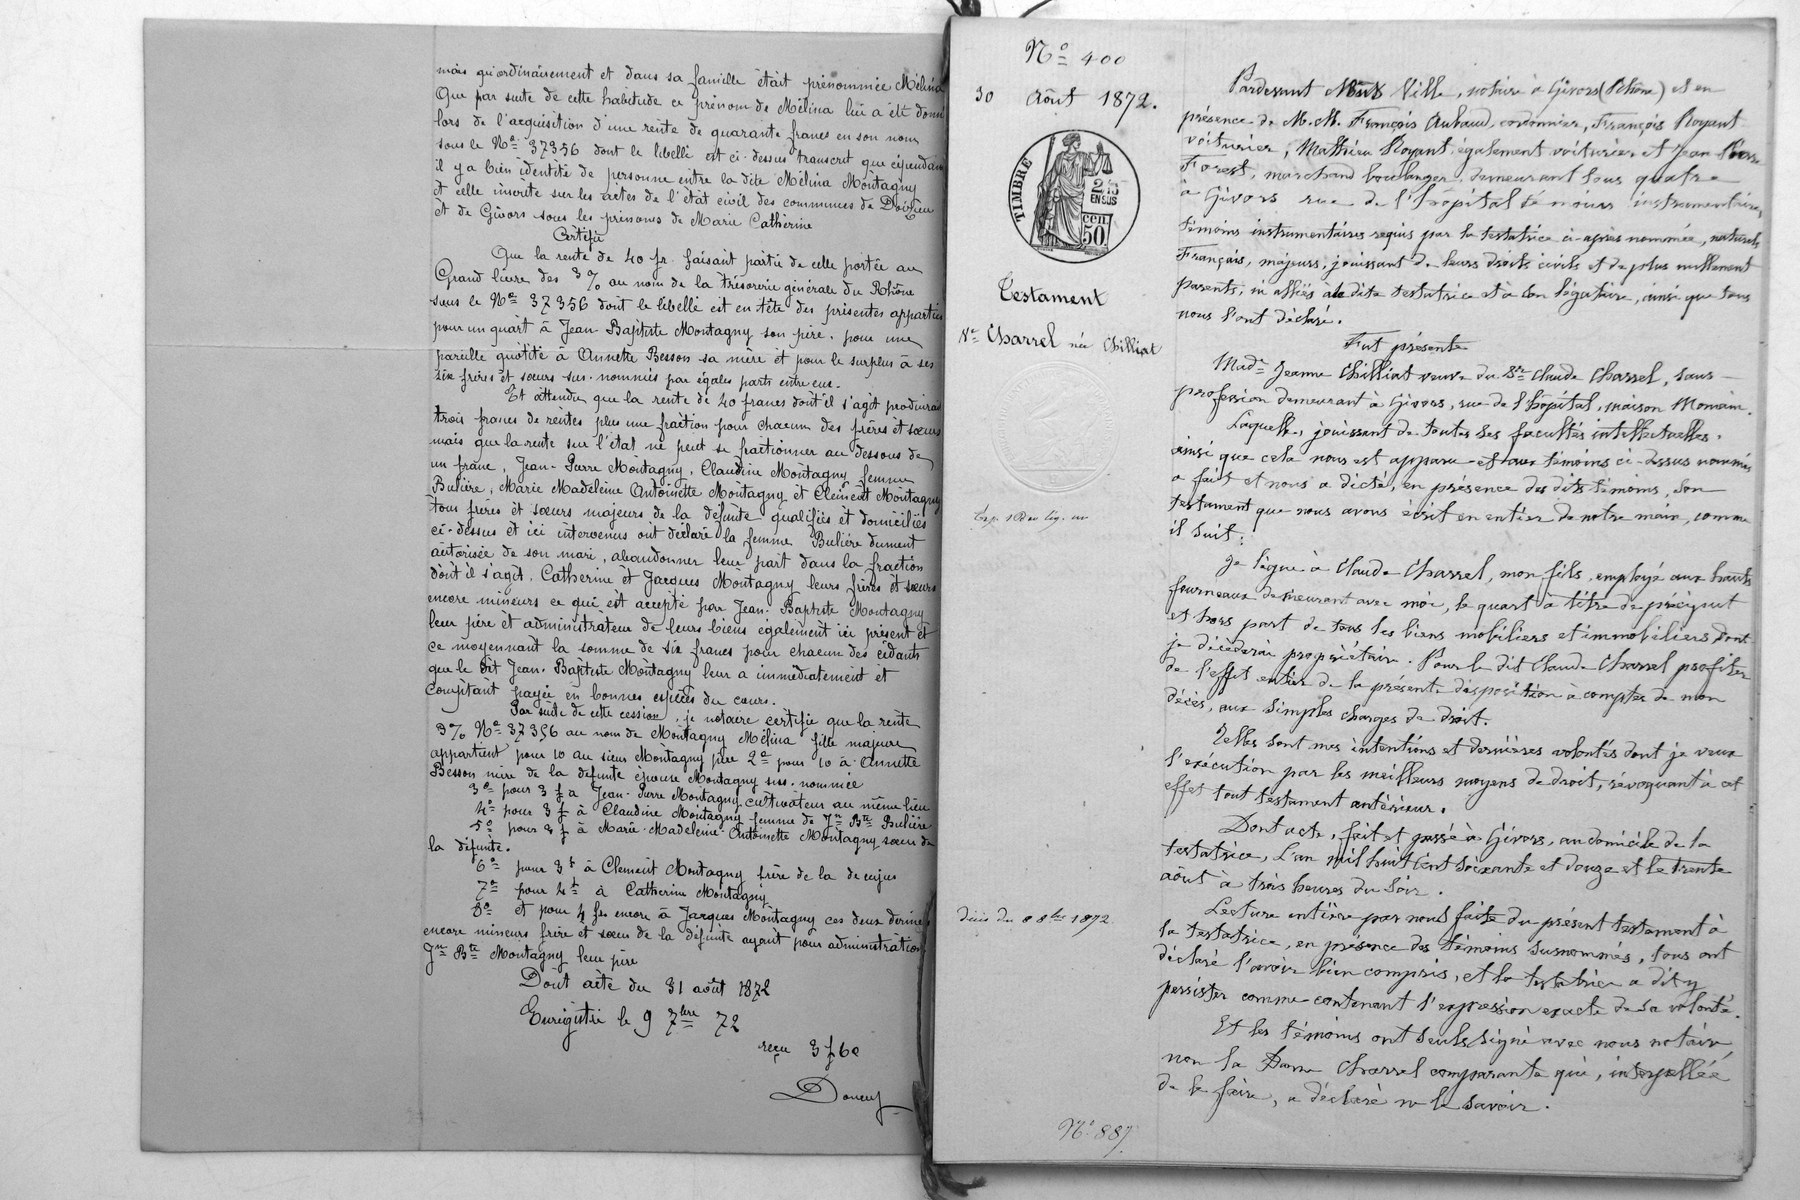 mais qu'ordinairement et dans sa famille était prénommée Mélina
Que par suite de cette habitude ce prénom de Mélina lui a été donné
lors de l'acquisition d'une rente de quarante francs en son nom
sous le N° 37356 dont le libellé est ci-dessus transcrit que cependant
il y a bien identité de personne entre la dite Mélina Montagny
et celle inscrite sur les actes de l'état civil des communes de Doizieu
et de Givors sous les prénoms de Marie Catherine
Certifie
Que la rente de 40 fr. faisant partie de celle portée au
Grand livre des 3 % au nom de la trésorerie générale du Rhône
sous le N° 37356 dont le libellé est en tête des présentes appartient
pour un quart à Jean-Baptiste Montagny son père, pour une
pareille quotité à Annette Besson sa mère et pour le surplus à ses
six frères et sœurs sus-nommés par égales parts entre eux.
Et attendu que la rente de 40 francs dont il s'agit produirait
trois francs de rentes plus une fraction pour chacun des frères et sœurs
mais que la rente sur l'état ne peut se fractionner au dessous de
un franc, Jean-Pierre Montagny, Claudine Montagny femme
Bulière, Marie Madeleine Antoinette Montagny et Clément Montagny
tous frères et sœurs majeurs de la défunte qualifiés et domiciliés
ci-dessus et ici intervenus ont déclaré la femme Bulière dument
autorisée de son mari, abandonner leur part dans la fraction
dont il s'agit. Catherine et Jacques Montagny leurs frères et sœurs
encore mineurs ce qui est accepté par Jean-Baptiste Montagny
leur père et administrateur de leurs biens également ici présent et
ce moyennant la somme de six francs pour chacun des cédants
que le dit Jean-Baptiste Montagny leur a immédiatement et
comptant payée en bonnes espèces du cours.
Par suite de cette cession, je notaire certifie que la rente
3% N° 37356 au nom de Montagny Mélina fille majeure
appartient pour 10 au sieur Montagny père 2° pour 10 à Annette
Besson mère de la défunte épouse Montagny sus-nommée
3° pour 3 f à Jean-Pierre Montagny cultivateur au même lieu
4° pour 3 f à Claudine Montagny femme de Jn Bte Bulière
5° pour 3 f à Marie-Madeleine-Antoinette Montagny sœur de
la défunte.
6° pour 3 f à Clément Montagny frère de la de cujus
7° pour 4 f à Catherine Montagny
8° et pour 4 frs encore à Jacques Montagny ces deux derniers
encore mineurs frère et sœur de la défunte ayant pour administration
Jn Bte Montagny leur père
Dont acte du 31 août 1872
Enregistré le 9 7bre 72
reçu 3 f 60
N° 400
30 Août 1872.
TIMBRE
2/10
EN SUS
50 cen
Testament
Ve Charrel née Chilliat
décès du 8 8bre 1872.
N° 887
Pardevant Mtre Ville, notaire à Givors (Rhône) et en
présence de M.M. François Aubaud, cordonnier, François Royant
voiturier, Mathieu Royant également voiturier et Jean Pierre
Forest, marchand boulanger demeurant tous quatre
à Givors rue de l'hôpital témoins instrumentaires
témoins instrumentaires requis par la testatrice ci-après nommée, naturels
Français, majeurs, jouissant de leurs droits civils et de plus nullement
parents, ni alliés à la dite testatrice et à son légataire, ainsi que tous
nous l'ont déclaré.
Fut présente
Made Jeanne Chilliat veuve du Sr Claude Charrel, sans
profession demeurant à Givors, rue de l'hôpital, maison Momain.
Laquelle, jouissant de toutes ses facultés intellectuelles.
ainsi que cela nous est apparu et aux témoins ci-dessus nommés
a fait et nous a dicté, en présence des dits témoins, son
testament que nous avons écrit en entier de notre main, comme
il suit:
Je lègue à Claude Charrel, mon fils, employé aux hauts
fourneaux demeurant avec moi, le quart à titre de préciput
et hors part de tous les biens mobiliers et immobiliers dont
je décèderai propriétaire. Pour le dit Claude Charrel profiter
de l'effet entier de la présente disposition à compter de mon
décès, aux simples charges de droit.
Telles sont mes intentions et dernières volontés dont je veux
l'exécution par les meilleurs moyens de droit, révoquant à cet
effet tout testament antérieur.
Dont acte, fait et passé à Givors, au domicile de la
testatrice, L'an mil huit cent soixante et douze et le trente
août à trois heures du soir.
Lecture entière par nous faite du présent testament à
la testatrice, en présence des témoins susnommés, tous ont
déclaré l'avoir bien compris, et la testatrice a dit y
persister comme contenant l'expression exacte de sa volonté.
Et les témoins ont seuls signé avec nous notaire,
non la Dame Charrel comparante qui, interpellée
de le faire, a déclaré ne le savoir.